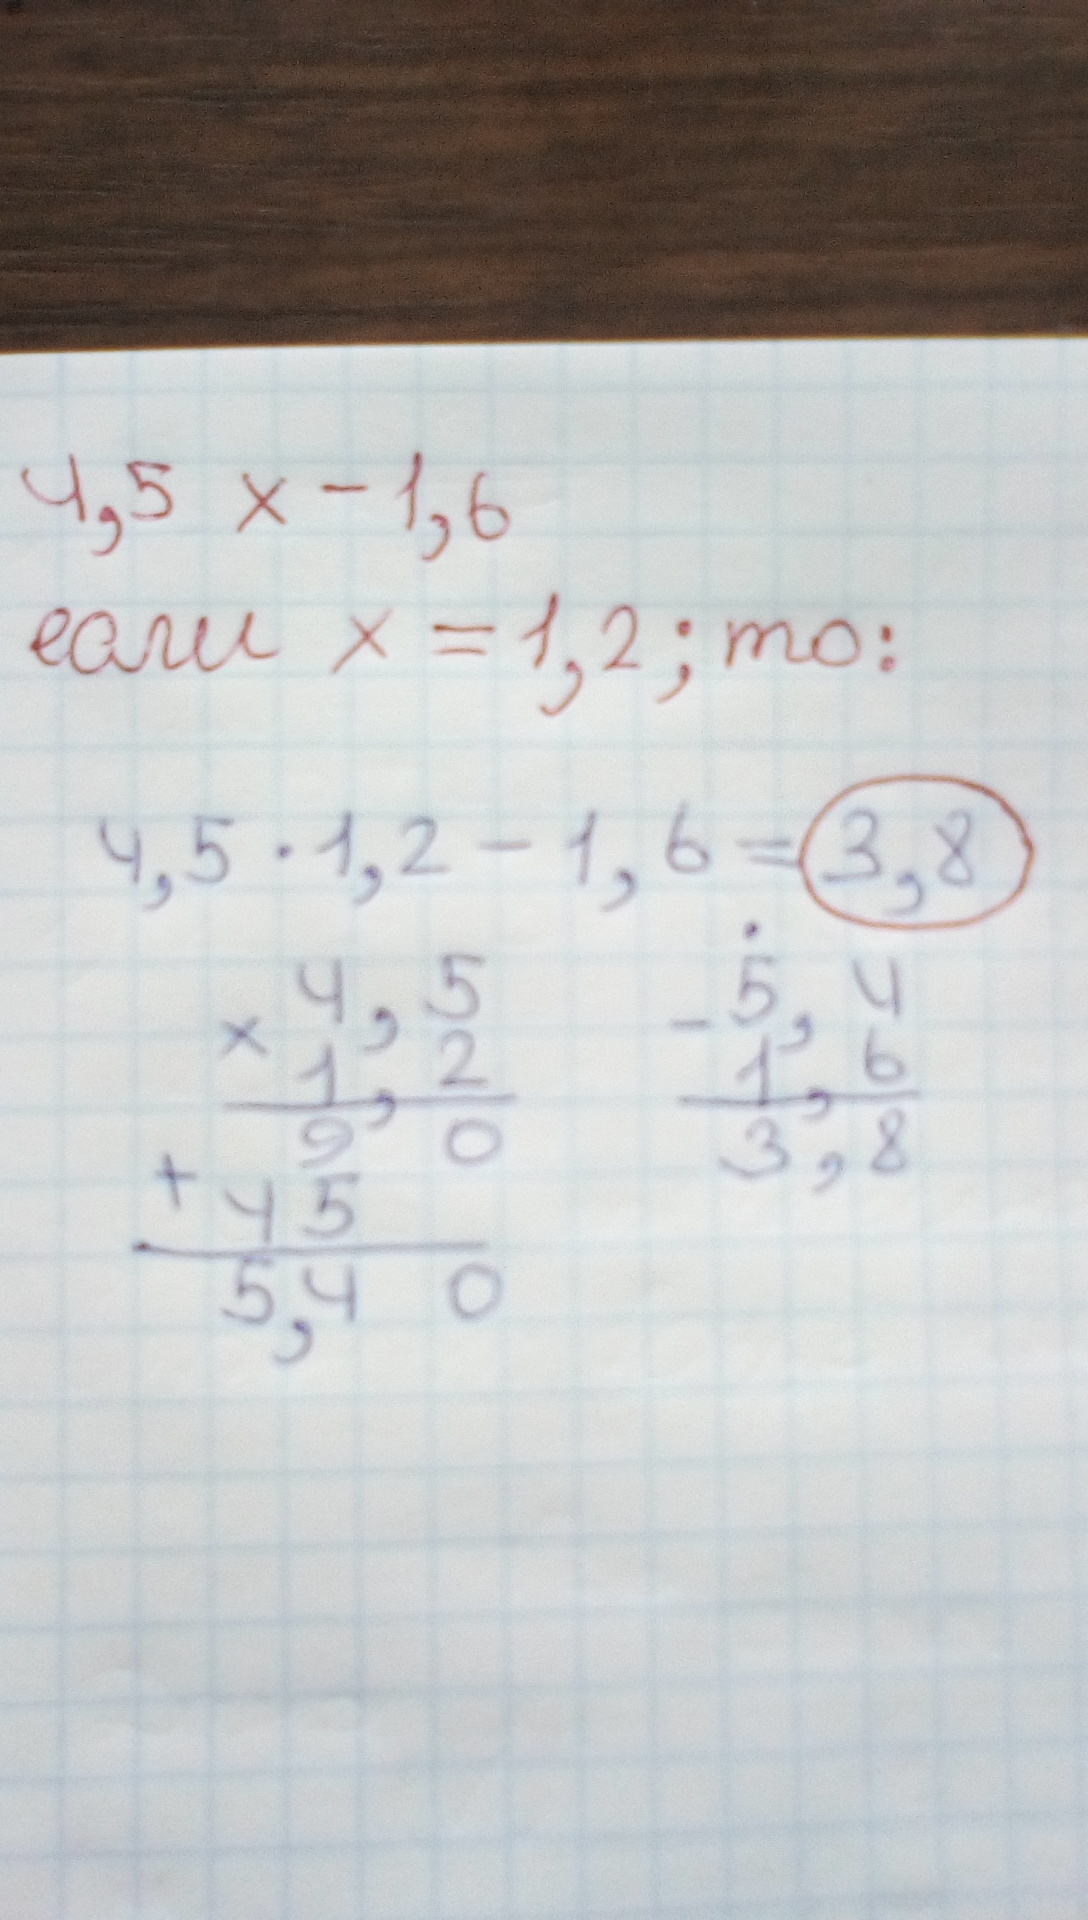 4,5 x - 1,6
если x = 1,2; то:
4,5 · 1,2 - 1,6 = 3,8
× 4,5
1,2
9 0
+ 45
5,4 0
- 5,4
1,6
3,8